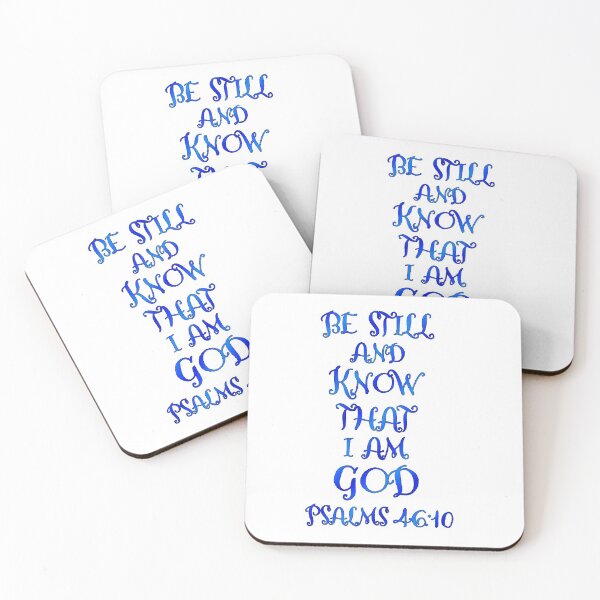 BE STILL
AND
KNOW
THAT
BE STILL
AND
KNOW
THAT
I AM
GOD
BE STILL
AND
KNOW
THAT
I AM
GOD
PSALMS 4
BE STILL
AND
KNOW
THAT
I AM
GOD
PSALMS 46:10